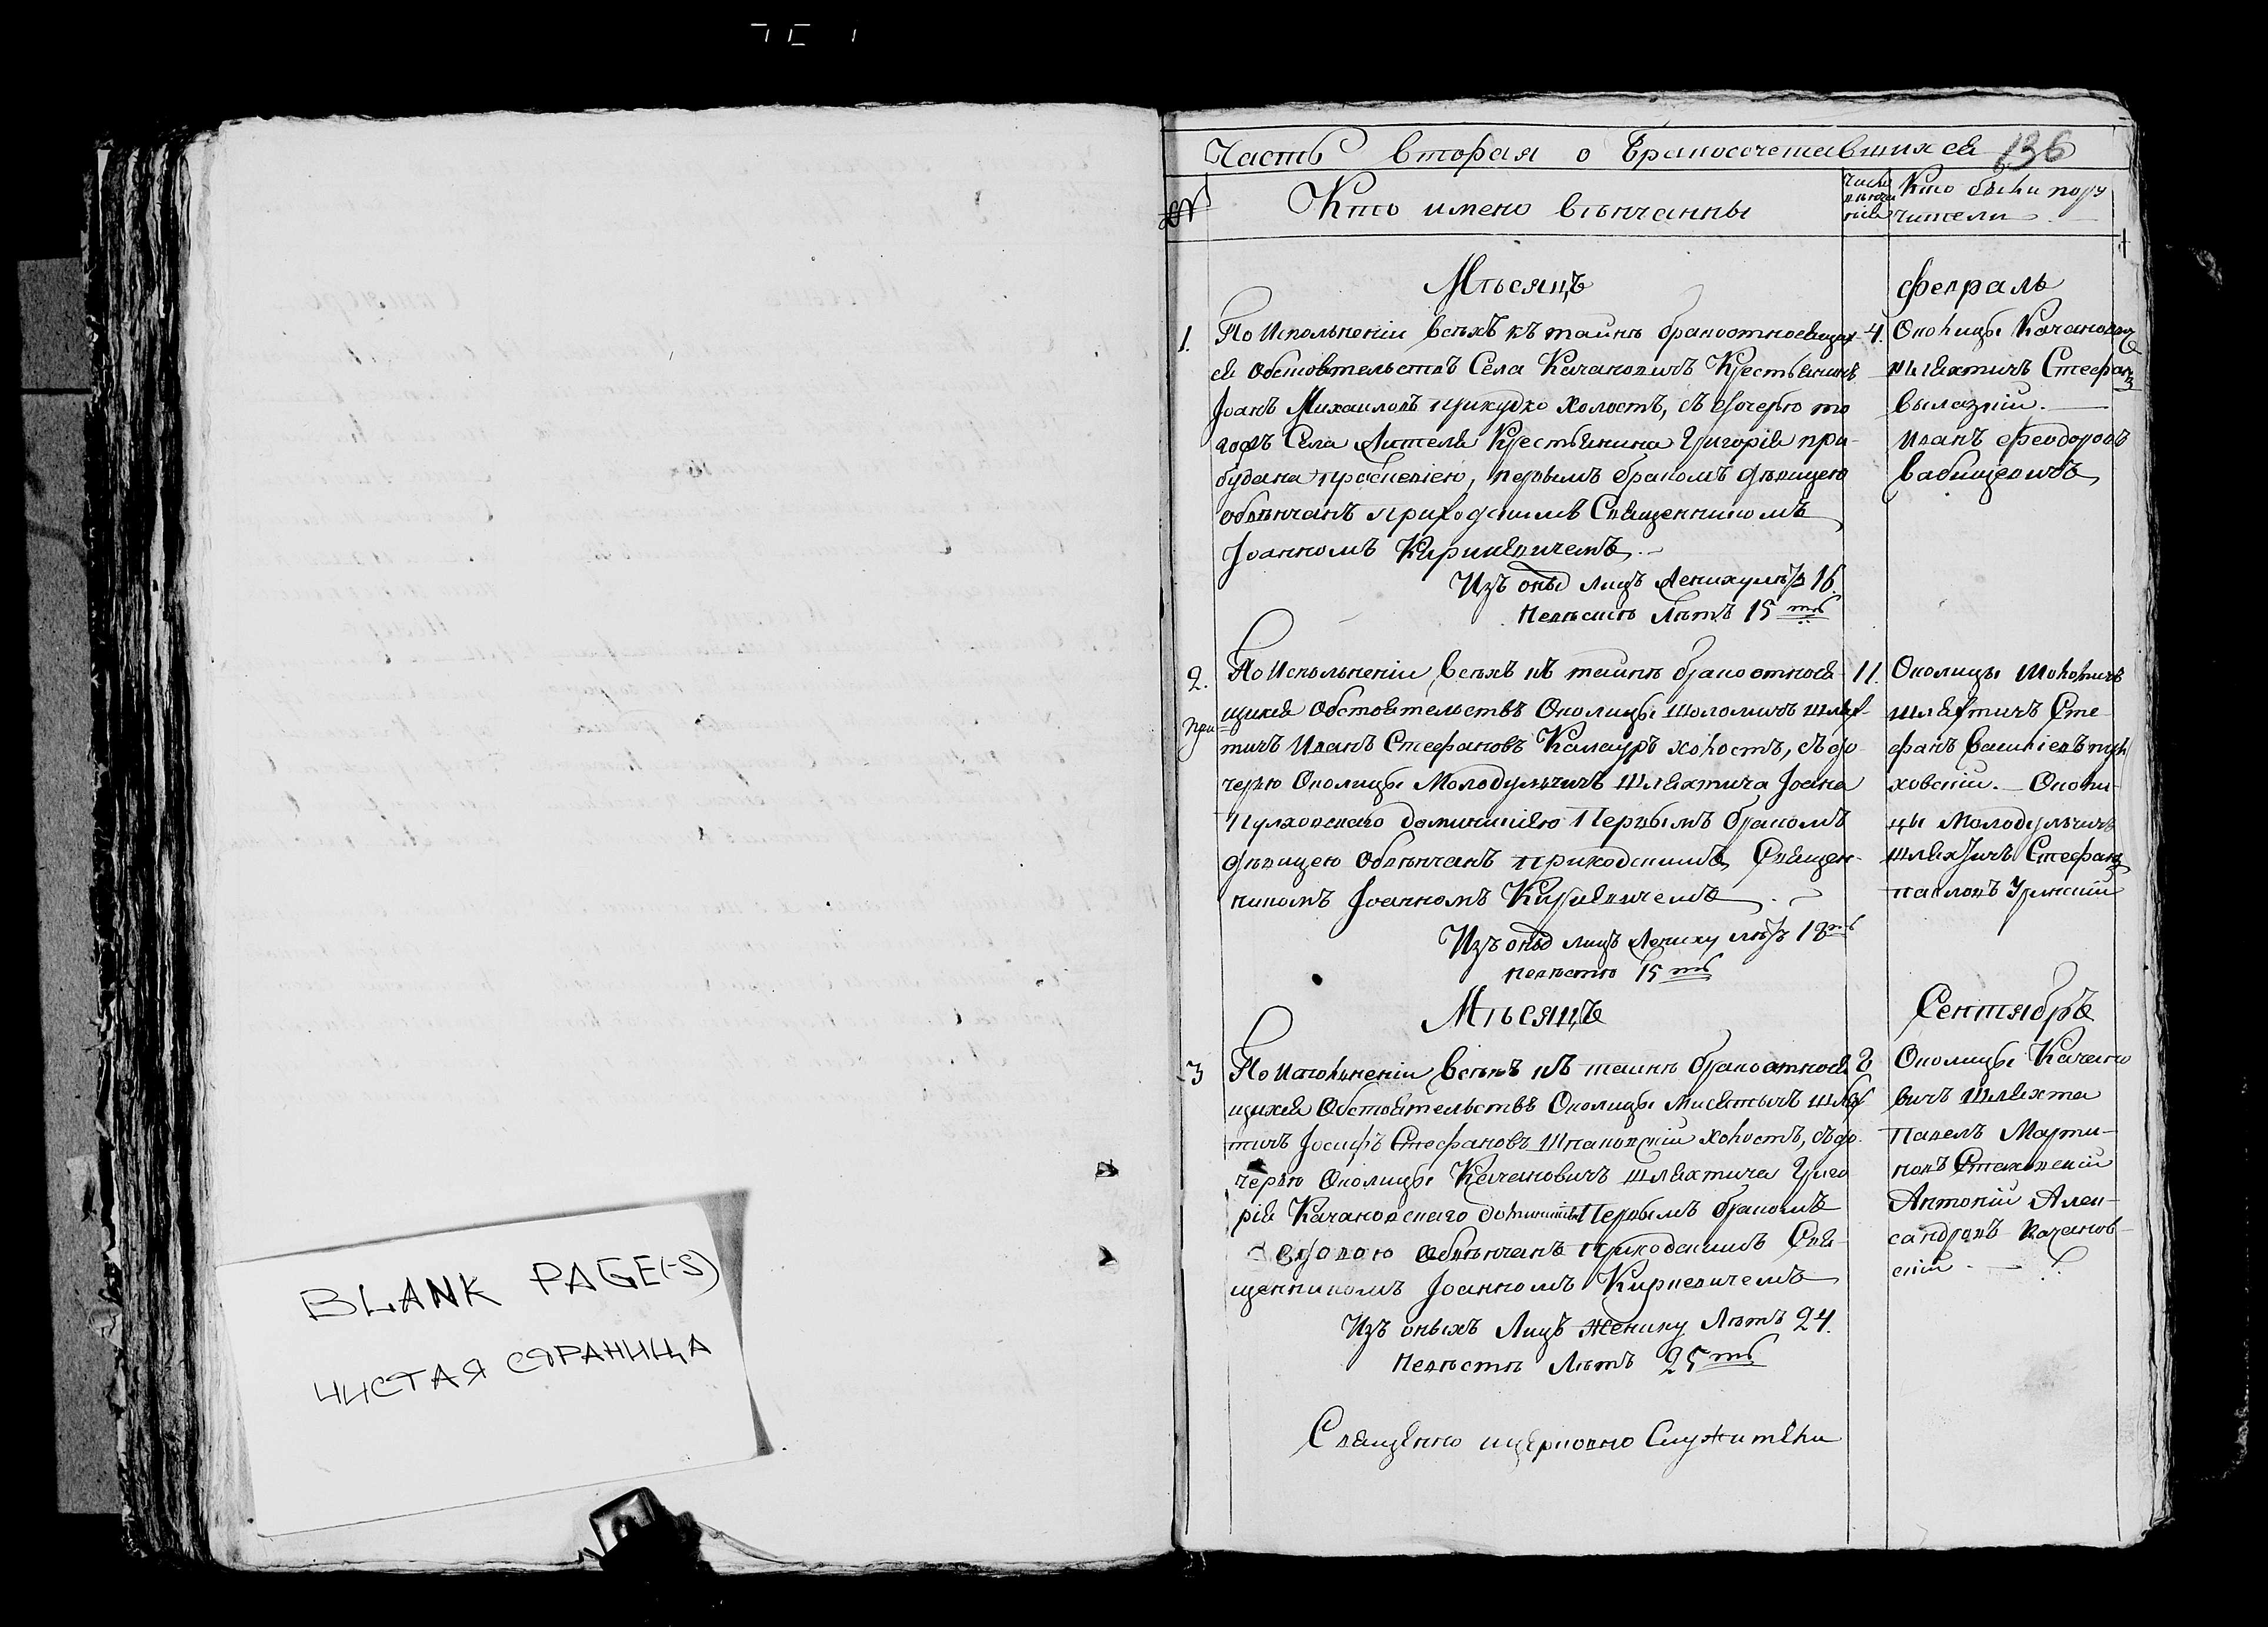 Часть вторая о Бракосочетавшихся 136
№
Кто имено вѣнчанны
Число вѣнчанія
Кто были пору
чители
Мѣсяцъ
февраль
1. По Исполненіи всѣхъ къ таинѣ бракоотносящих- 4.
ся обстоятельствъ Села Качановичъ Крестьянинъ
Іоанъ Михаиловъ холостъ, съ дочерю то
гожъ Села Жителя Крестьянина Григорія
первымъ бракомъ дѣвицею
обвѣнчанъ приходскимъ Священникомъ
Іоанномъ
Изъ оных лицъ жениху лѣтъ 16.
Невѣстѣ Лѣтъ 15ть
Околицы
шляхтичъ Стефанъ
Иванъ Феодоровъ
2. По Исполненіи всѣхъ къ таинѣ бракоотнося 11.
щихся Обстоятельствъ Околицы Шоломичъ шлях-
тичъ Иванъ Стефановъ Калауръ холостъ, съ до-
черю Околицы Молодульчичъ Шляхтича Іоана
Первымъ бракомъ
дѣвицею обвѣнчанъ приходскимъ Священ-
никомъ Іоанномъ
Изъ оных лицъ жениху лѣтъ 18ть
невѣстѣ 15ть
Околицы
шляхтичъ Сте-
фанъ
ховскій. Околи-
цы Молодульчичъ
Шляхтичъ Стефанъ
Павловъ
Мѣсяцъ
Сентябрь
3 По Исполненіи всѣхъ къ таинѣ бракоотнося 8
щихся Обстоятельствъ Околицы шлях
тичъ Іосифъ Стефановъ Шпаковскій холостъ, съ до-
черю Околицы Качановичъ шляхтича Григо
рія Качановскаго Первымъ бракомъ
вдовою обвѣнчанъ приходскимъ Свя-
щенникомъ Іоанномъ
Изъ оныхъ Лицъ Жениху Лѣтъ 24.
Невѣстѣ Лѣтъ 25ть
Околицы Качано
вичъ Шляхта
Павелъ Марти-
новъ Стаховскій
Антоній Алек-
сандровъ Качанов-
скій
Священно ицерковно Служители
BLANK PAGE(-S)
ЧИСТАЯ СТРАНИЦА